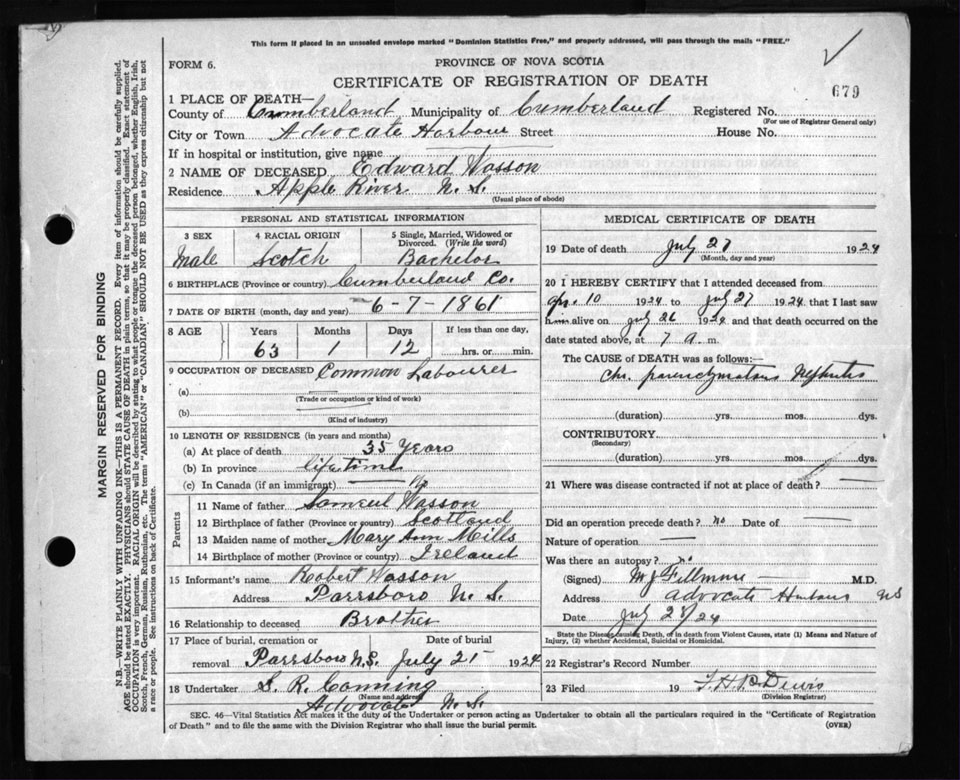 This form if placed in an unsealed envelope marked "Dominion Statistics Free," and properly addressed, will pass through the mails "FREE."
FORM 6.
PROVINCE OF NOVA SCOTIA
CERTIFICATE OF REGISTRATION OF DEATH
679
1 PLACE OF DEATH—
County of Cumberland Municipality of Cumberland Registered No.
(For use of Registrar General only)
City or Town Advocate Harbour Street House No.
If in hospital or institution, give name
2 NAME OF DECEASED Edward Wasson
Residence Apple River N. S.
(Usual place of abode)
PERSONAL AND STATISTICAL INFORMATION
3 SEX 4 RACIAL ORIGIN 5 Single, Married, Widowed or Divorced. (Write the word)
Male Scotch Bachelor
6 BIRTHPLACE (Province or country) Cumberland Co.
7 DATE OF BIRTH (month, day and year) 6-7-1861
8 AGE Years Months Days If less than one day,
63 1 12 hrs. or min.
9 OCCUPATION OF DECEASED Common Labourer
(a)
(Trade or occupation or kind of work)
(b)
(Kind of industry)
10 LENGTH OF RESIDENCE (in years and months)
(a) At place of death 35 Years
(b) In province life time
(c) In Canada (if an immigrant)
Parents
11 Name of father Samuel Wasson
12 Birthplace of father (Province or country) Scotland
13 Maiden name of mother Mary Ann Mills
14 Birthplace of mother (Province or country) Ireland
15 Informant's name Robert Wasson
Address Parrsboro N. S.
16 Relationship to deceased Brother
17 Place of burial, cremation or removal Date of burial
Parrsboro N.S. July 1924
18 Undertaker S. R. Conning
(Name and address)
Advocate N. S.
MEDICAL CERTIFICATE OF DEATH
19 Date of death July 27 1924
(Month, day and year)
20 I HEREBY CERTIFY that I attended deceased from
10 1924 to July 27 1924 that I last saw
him alive on July 26 1924 and that death occurred on the
date stated above, at 7 a m.
The CAUSE of DEATH was as follows:—
Chr. parenchymatous Nephritis
(duration) yrs. mos. dys.
CONTRIBUTORY
(Secondary)
(duration) yrs. mos. dys.
21 Where was disease contracted if not at place of death?
Did an operation precede death? No Date of
Nature of operation
Was there an autopsy? no
(Signed) M J Fillmore M.D.
Address Advocate Harbour NS
Date July 28/24
State the Disease causing Death, or in death from Violent Causes, state (1) Means and Nature of Injury, (2) whether Accidental, Suicidal or Homicidal.
22 Registrar's Record Number
23 Filed 19
(Division Registrar)
SEC. 46—Vital Statistics Act makes it the duty of the Undertaker or person acting as Undertaker to obtain all the particulars required in the "Certificate of Registration
of Death" and to file the same with the Division Registrar who shall issue the burial permit. (OVER)
MARGIN RESERVED FOR BINDING
N.B.—WRITE PLAINLY WITH UNFADING INK—THIS IS A PERMANENT RECORD. Every item of information should be carefully supplied.
AGE should be stated EXACTLY. PHYSICIANS should STATE CAUSE OF DEATH in plain terms, so that it may be properly classified. Exact statement of
OCCUPATION is very important. RACIAL ORIGIN will be described by stating to what people or tongue the deceased person belonged, whether English, Irish,
Scotch, French, German, Russian, Ruthenian, etc. The terms "AMERICAN" or "CANADIAN" SHOULD NOT BE USED as they express citizenship but not
a race or people. See instructions on back of Certificate.